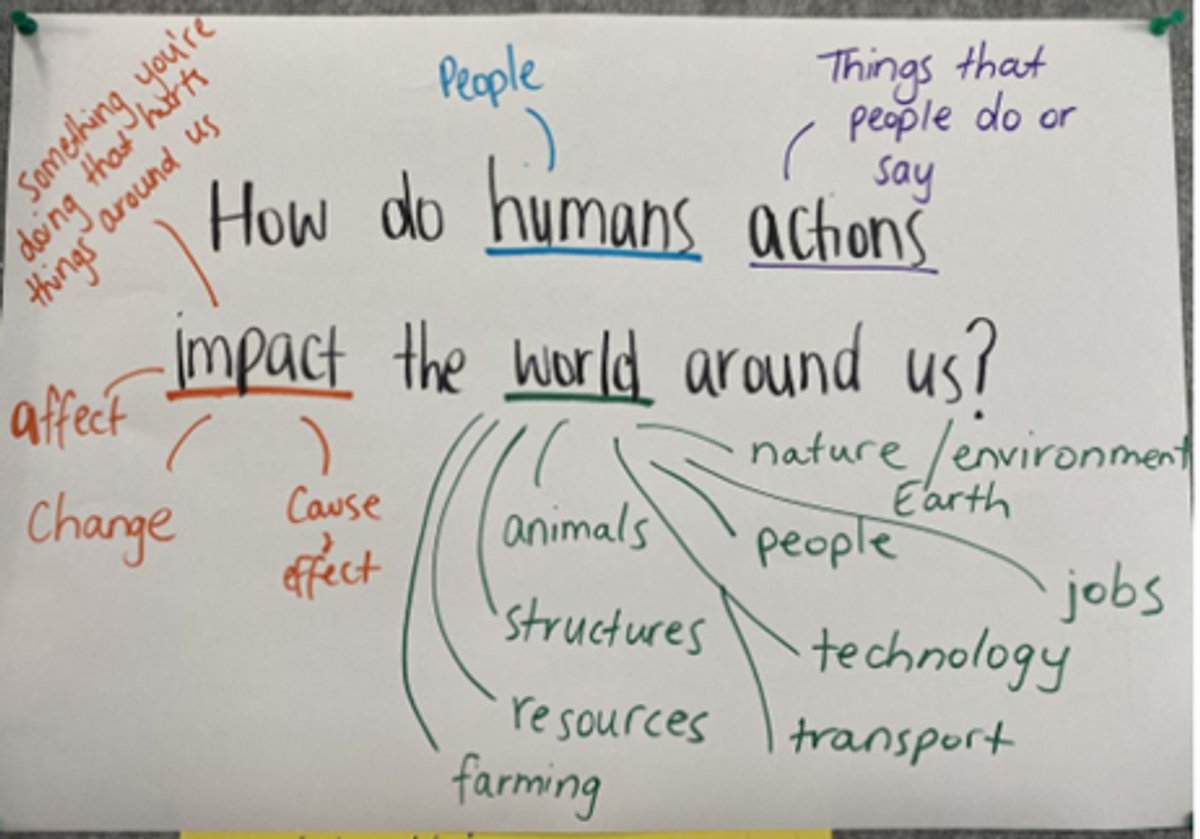 Something you're
doing that hurts
things around us
People
Things that
people do or
say
How do humans actions
impact the world around us?
affect
Change
Cause
effect
nature / environment
Earth
animals
people
jobs
structures
technology
resources
transport
farming